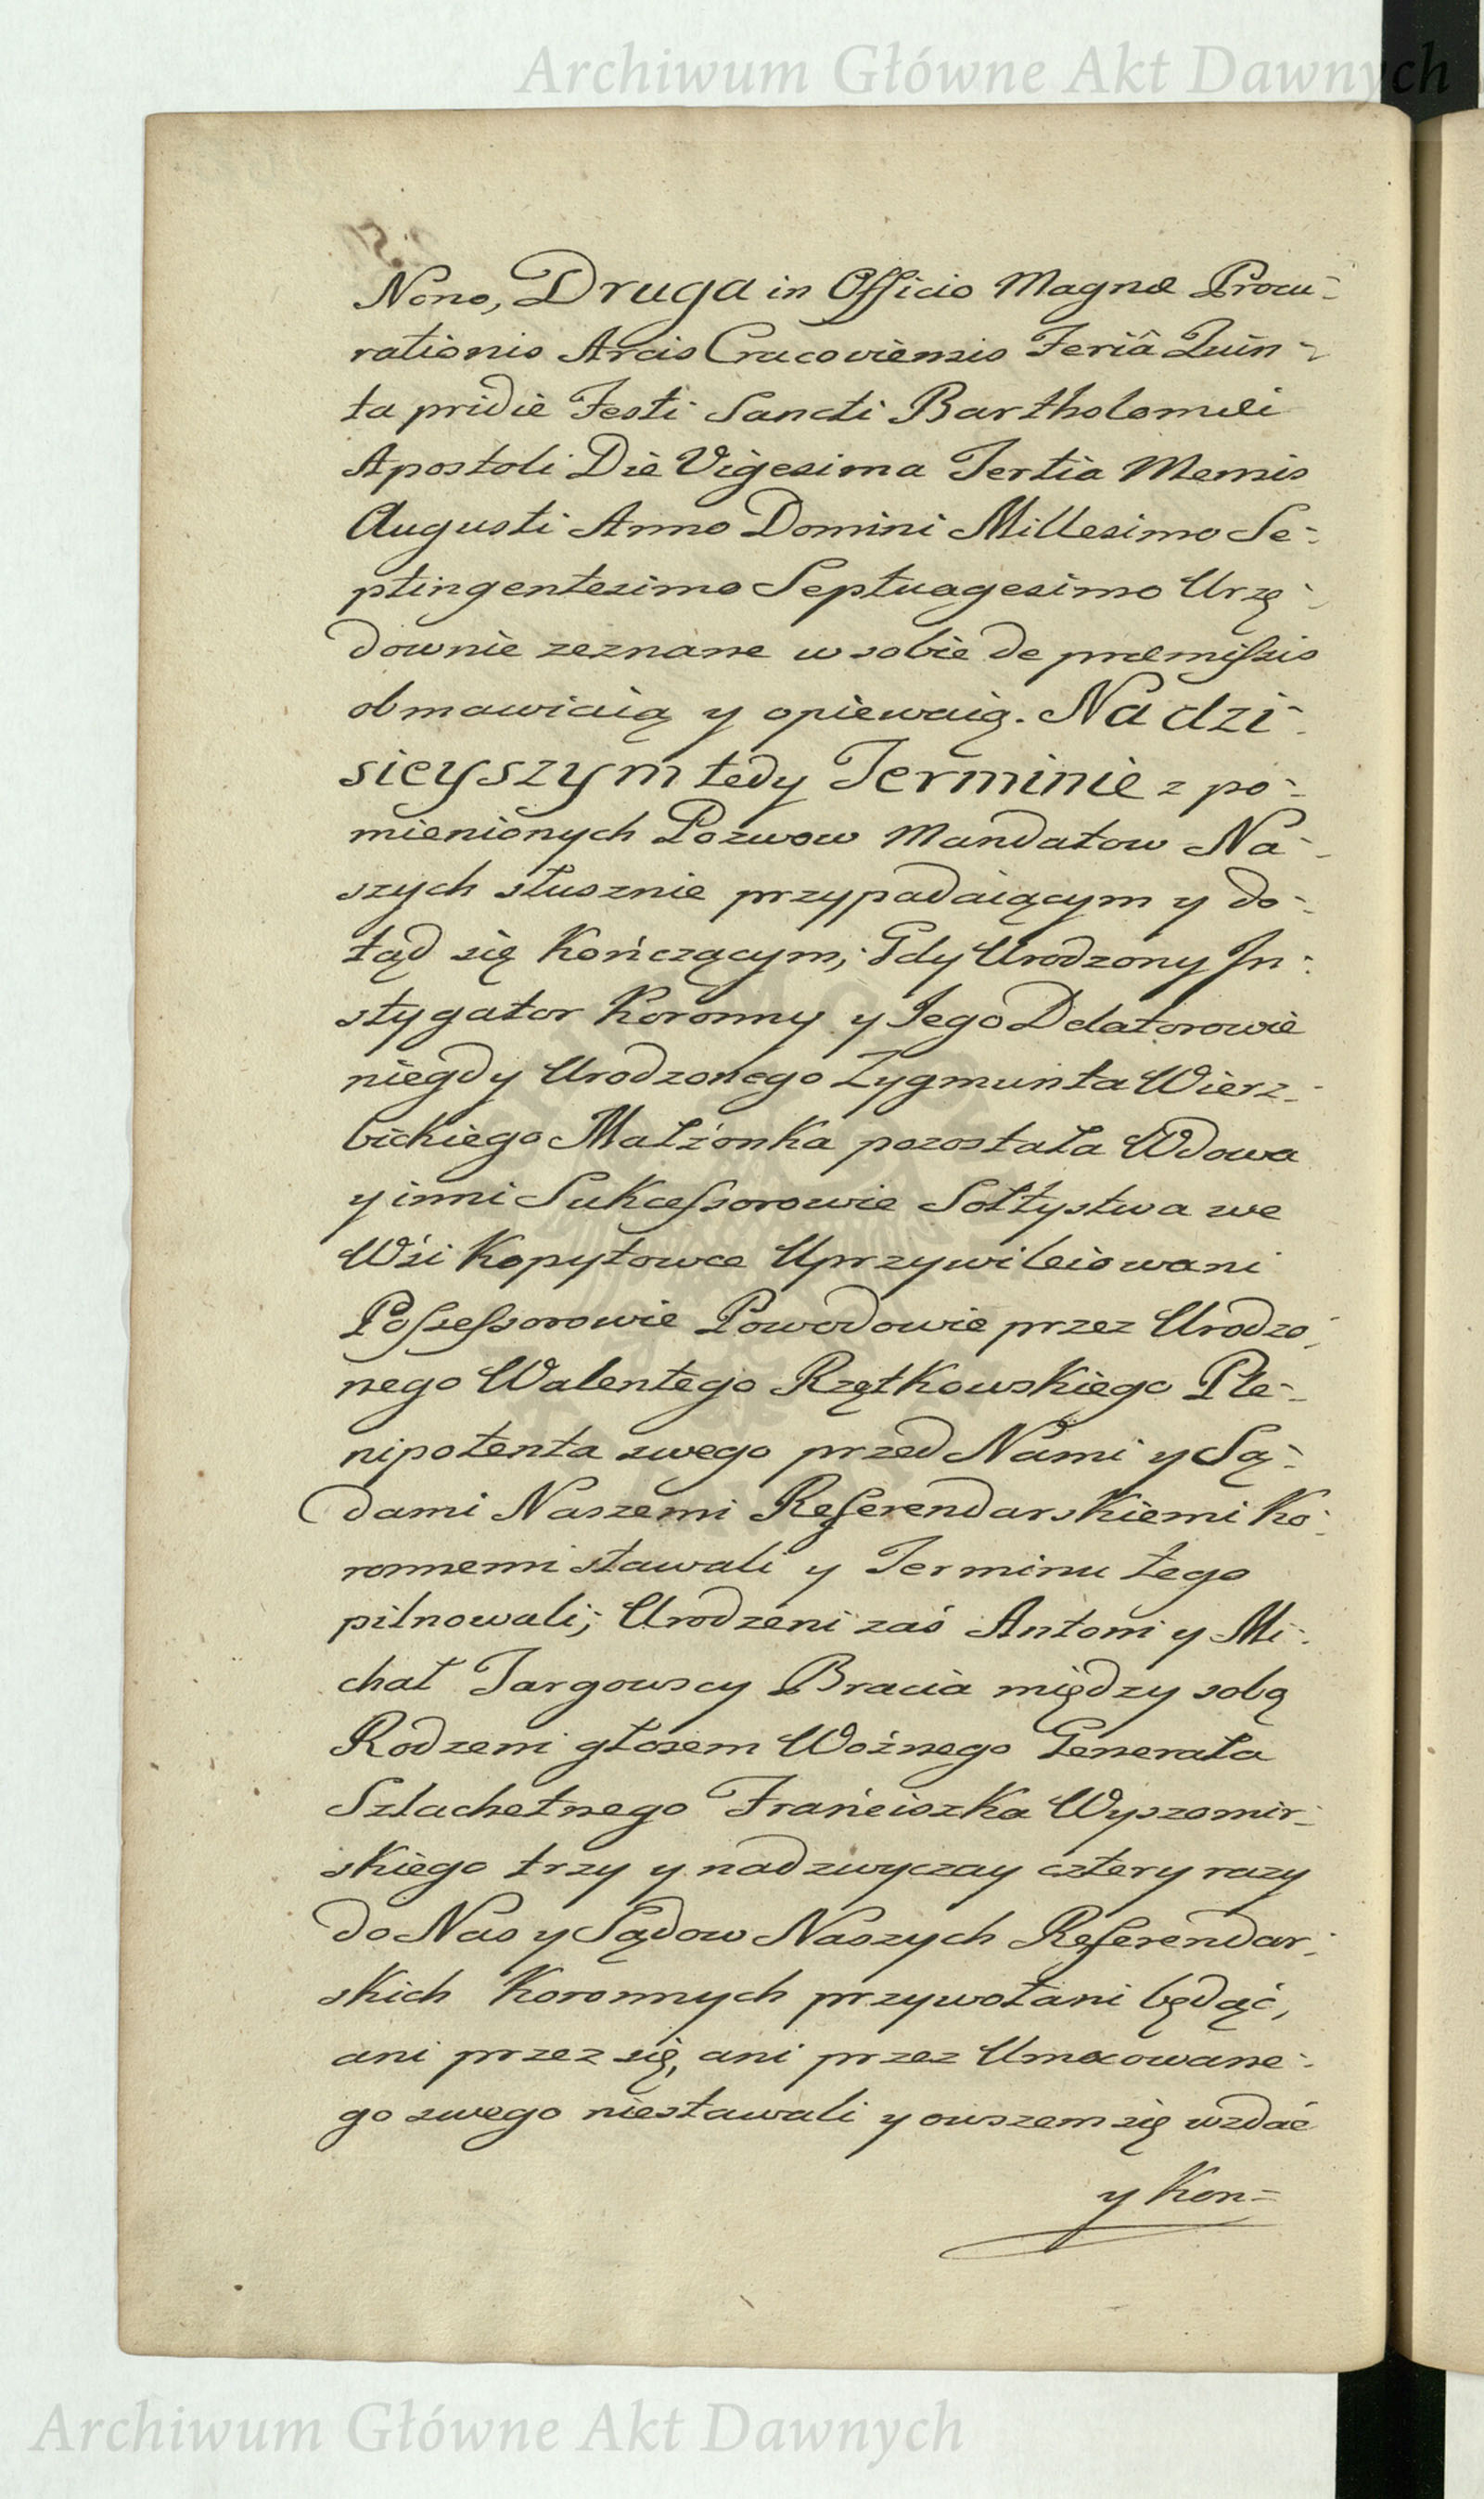 Archiwum Główne Akt Dawnych
Nono, Druga in Officio Magnæ Procu-
rationis Arcis Cracoviensis Feriâ Quin-
ta pridie Festi Sancti Bartholomæi
Apostoli Die Vigesima Tertia Mensis
Augusti Anno Domini Millesimo Se-
ptingentesimo Septuagesimo Urzę-
downie zeznane w sobie de præmissis
obmawiaią y opiewaią. Na dzi-
sieyszym tedy Terminie z po-
mienionych Pozwow Mandatow Na-
szych słusznie przypadaiącym y do-
tąd się kończącym, Gdy Urodzony In-
stygator Koronny y Jego Delatorowie
niegdy Urodzonego Zygmunta Wierz-
bickiego Małżonka pozostała Wdowa
y inni Sukcessorowie Sołtystwa we
Wsi Kopytowce Uprzywileiowani
Possessorowie Powodowie przez Urodzo-
nego Walentego Rzętkowskiego Ple-
nipotenta swego przed Nami y Są-
dami Naszemi Referendarskiemi Ko-
ronnemi stawali y Terminu tego
pilnowali; Urodzeni zaś Antoni y Mi-
chał Targowscy Bracia między sobą
Rodzeni głosem Woźnego Generała
Szlachetnego Franciszka Wyszomir-
skiego trzy y nadzwyczay cztery razy
do Nas y Sądow Naszych Referendar-
skich Koronnych przywołani będąc,
ani przez się, ani przez Umocowane-
go swego niestawali y owszem się wzdać
y Kon=
Archiwum Główne Akt Dawnych